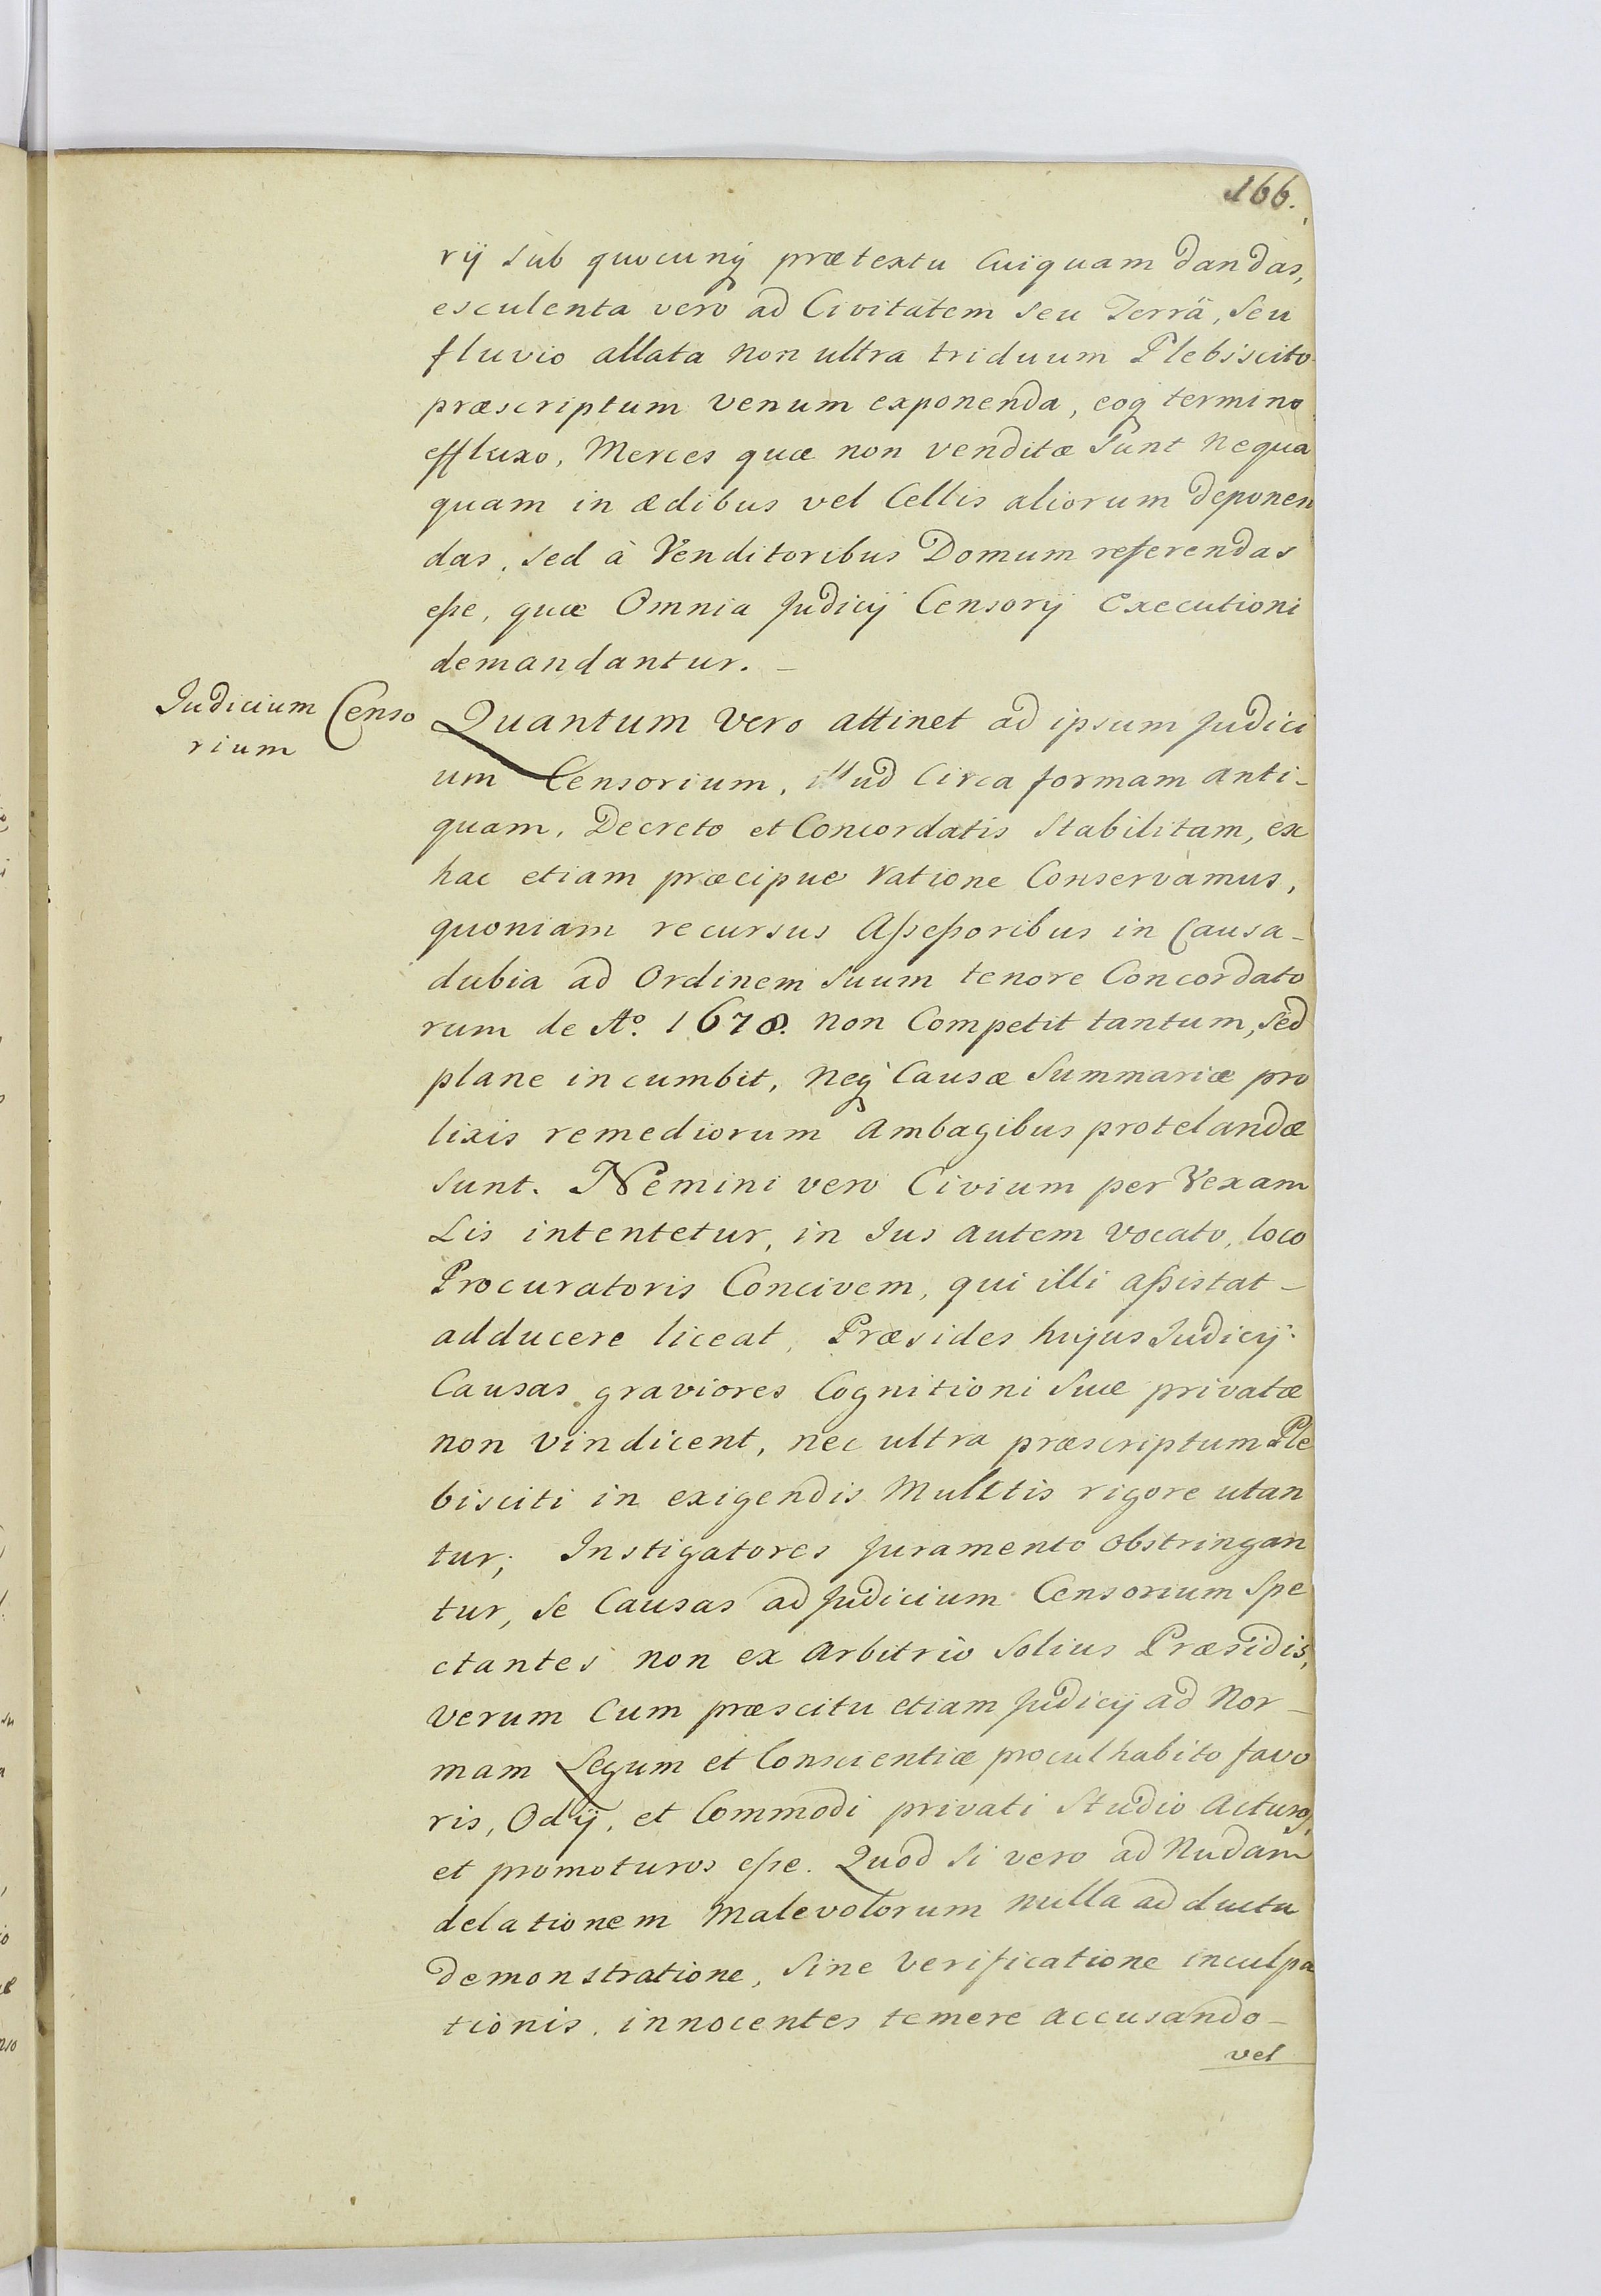 166.
rij sub quocunq prætextu Cuiquam dandas,
esculenta vero ad Civitatem seu Terrâ, seu
fluvio allata non ultra triduum Plebiscito
præscriptum venum exponenda, eoq termino
effluxo, Merces quæ non venditæ sunt nequa
quam in ædibus vel Cellis aliorum deponen
das, sed à Venditoribus Domum referendas
esse, quæ Omnia Judicij Censorij Executioni
demandantur. –
Judicium Censo
rium
Quantum vero attinet ad ipsum Judici
um Censorium, illud Circa formam anti-
quam, Decreto et Concordatis stabilitam, ex
hac etiam præcipue ratione Conservamus,
quoniam recursus Assessoribus in Causa –
dubia ad Ordinem suum tenore Concordato
rum de Aº. 1678. non Competit tantum, sed
plane incumbit, neq Causæ Summariæ pro
lixis remediorum Ambagibus protelandæ
sunt. Nemini vero Civium per Vexam
Lis intentetur, in Jus autem vocato, loco
Procuratoris Concivem, qui illi assistat –
adducere liceat, Præsides hujus Judicij
Causas graviores Cognitioni suæ privatæ
non vindicent, nec ultra præscriptum Ple
bisciti in exigendis Mulctis rigore utan
tur; Instigatores juramento obstringan
tur, se Causas ad Judicium Censorium spe
ctantes non ex Arbitrio solius Præsidis,
verum Cum præscitu etiam Judicij ad Nor –
mam Legum et Conscientiæ procul habito favo
ris, Odij, et Commodi privati studio acturos,
et promoturos esse. Quod si vero ad Nudam
delationem malevolorum nulla adducta
demonstratione, sine verificatione inculpa
tionis, innocentes temere accusando –
vel